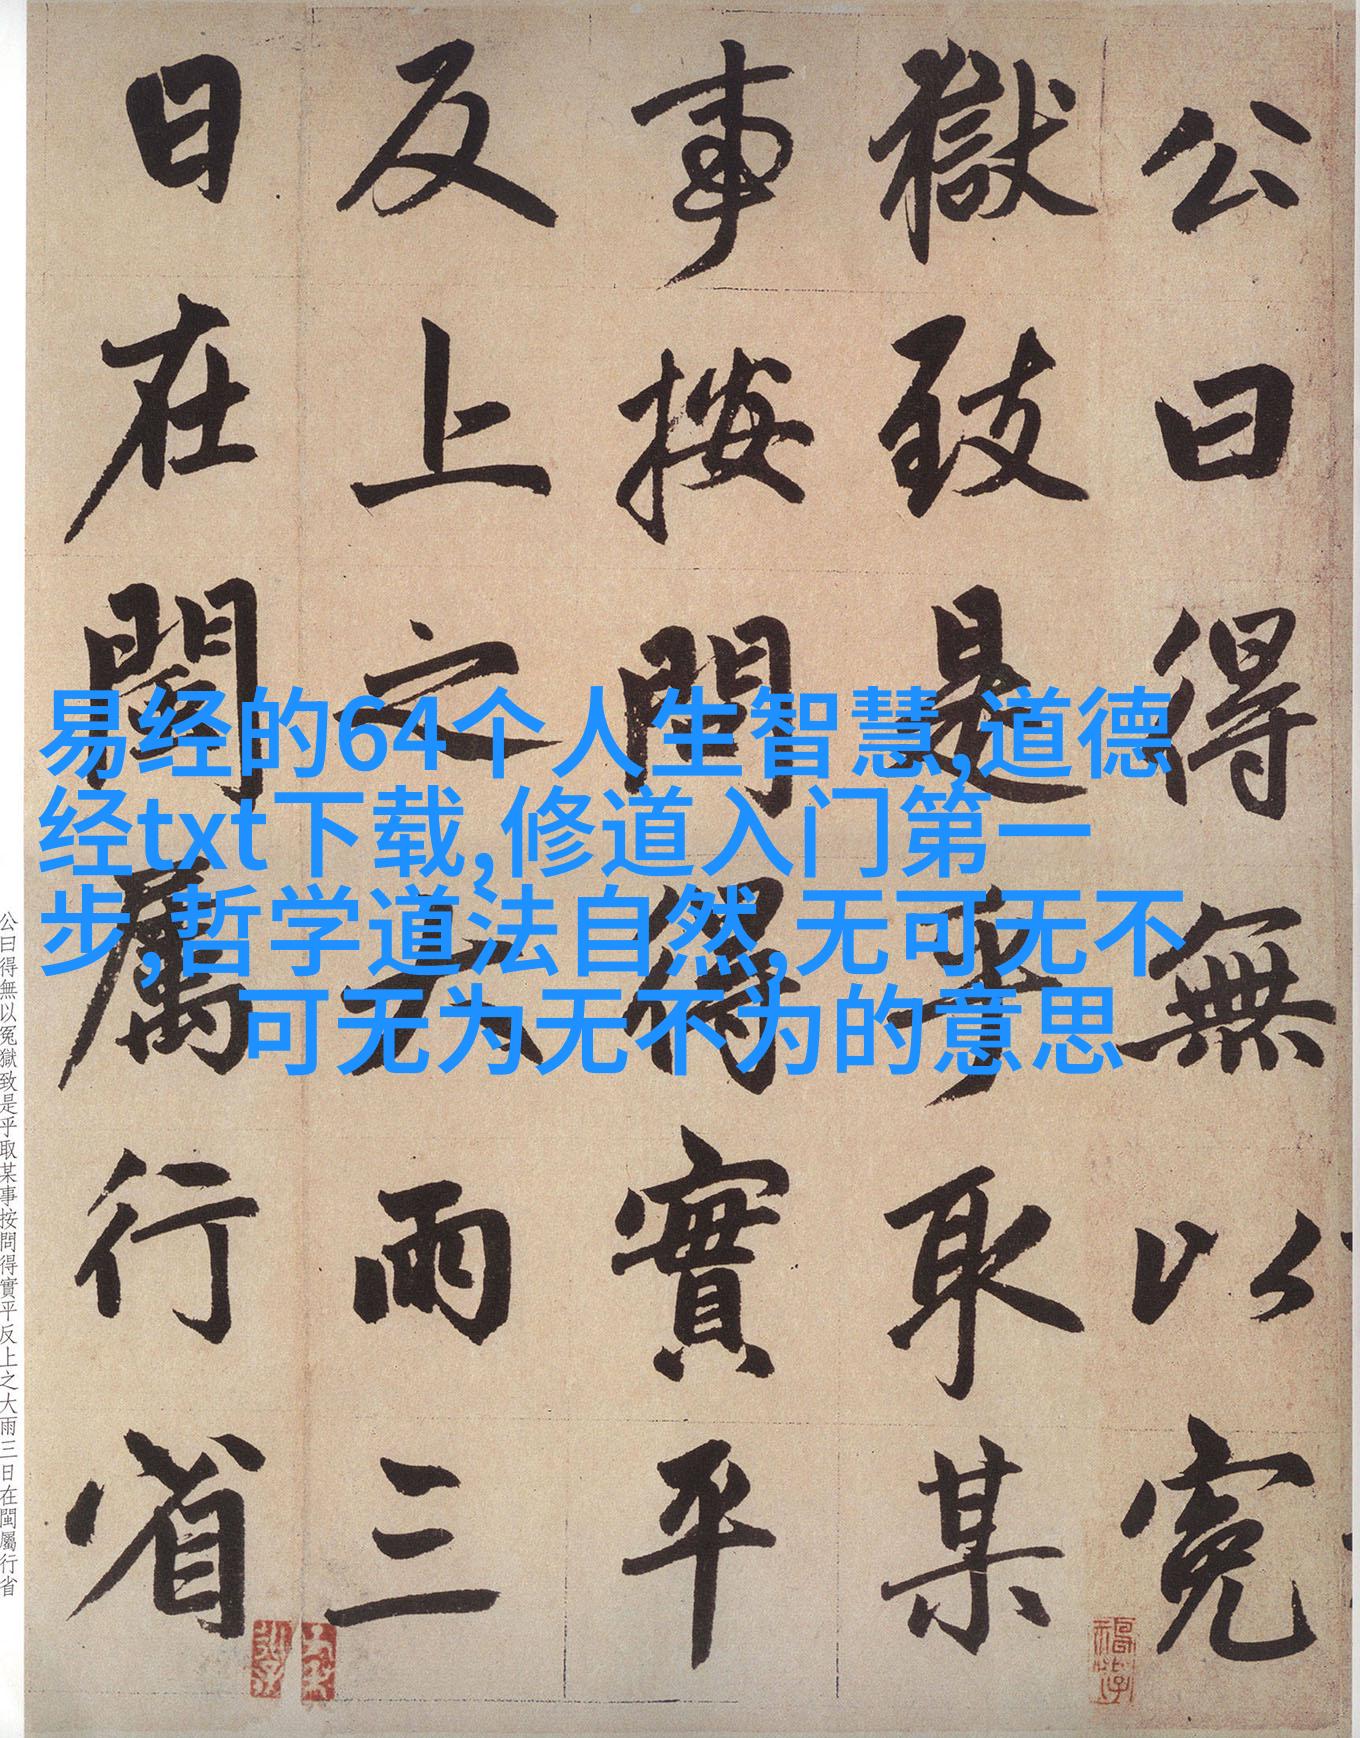 公曰得無以冤
獄致是乎取某
事按問得實平
反上之大雨三
日在閩屬行省
易经的64个人生智慧,道德
经txt下载,修道入门第一
步,哲学道法自然,无可无不
可无为无不为的意思
公曰得無以冤獄致是乎取某事按問得實平反上之大雨三日在閩屬行省